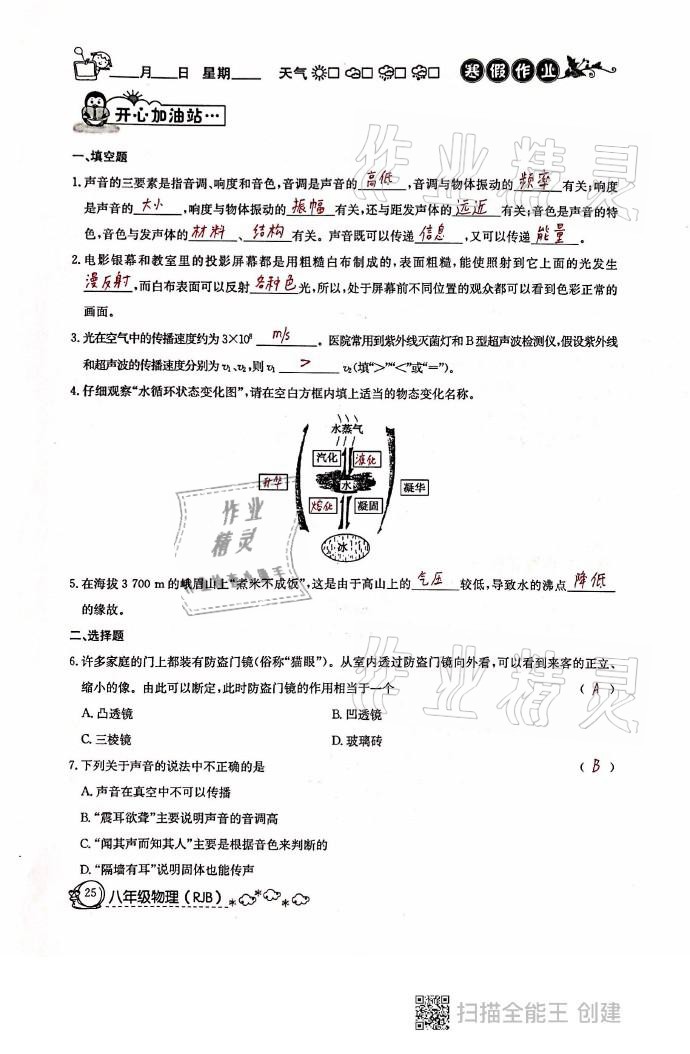 ____月____日 星期____ 天气 □ □ □ □ 寒假作业
开心加油站…
一、填空题
1. 声音的三要素是指音调、响度和音色,音调是声音的 高低 ,音调与物体振动的 频率 有关;响度
是声音的 大小 ,响度与物体振动的 振幅 有关,还与距发声体的 远近 有关;音色是声音的特
色,音色与发声体的 材料 、结构 有关。声音既可以传递 信息 ,又可以传递 能量 。
2. 电影银幕和教室里的投影屏幕都是用粗糙白布制成的,表面粗糙,能使照射到它上面的光发生
漫反射 ,而白布表面可以反射 各种色 光,所以,处于屏幕前不同位置的观众都可以看到色彩正常的
画面。
3. 光在空气中的传播速度约为 3×10⁸ m/s 。医院常用到紫外线灭菌灯和 B 型超声波检测仪,假设紫外线
和超声波的传播速度分别为 v₁、v₂,则 v₁ > v₂(填“>”“<”或“=”)。
4. 仔细观察“水循环状态变化图”,请在空白方框内填上适当的物态变化名称。
水蒸气
汽化 液化
升华 水 凝华
熔化 凝固
冰
5. 在海拔 3 700 m 的峨眉山上“煮米不成饭”,这是由于高山上的 气压 较低,导致水的沸点 降低
的缘故。
二、选择题
6. 许多家庭的门上都装有防盗门镜(俗称“猫眼”)。从室内透过防盗门镜向外看,可以看到来客的正立、
缩小的像。由此可以断定,此时防盗门镜的作用相当于一个 ( A )
A. 凸透镜 B. 凹透镜
C. 三棱镜 D. 玻璃砖
7. 下列关于声音的说法中不正确的是 ( B )
A. 声音在真空中不可以传播
B. “震耳欲聋”主要说明声音的音调高
C. “闻其声而知其人”主要是根据音色来判断的
D. “隔墙有耳”说明固体也能传声
25 八年级物理(RJB)
作业精灵
作业
精灵
作业精灵
扫描全能王 创建